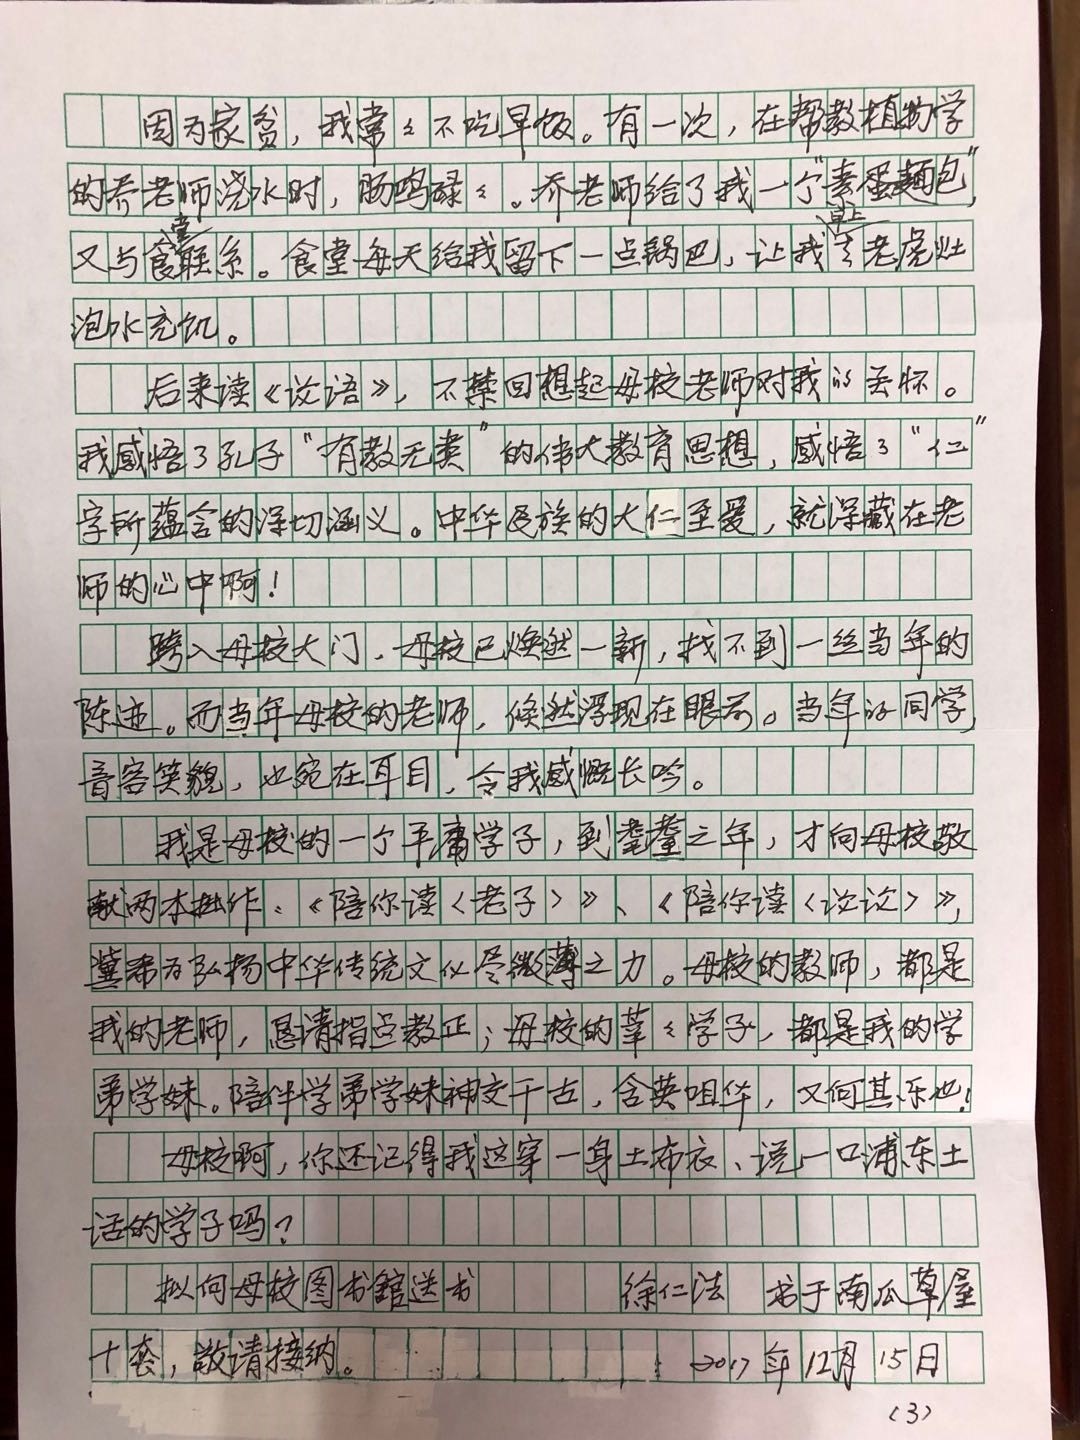 因为家贫，我常々不吃早饭。有一次，在帮教植物学
的乔老师浇水时，肠鸣碌々。乔老师给了我一个“素蛋麵包”，
又与食堂联系。食堂每天给我留下一点锅巴，让我早上去老虎灶
泡水充饥。
后来读《论语》，不禁回想起母校老师对我的关怀。
我感悟了孔子“有教无类”的伟大教育思想，感悟了“仁”
字所蕴含的深切涵义。中华民族的大仁至爱，就深藏在老
师的心中啊！
跨入母校大门，母校已焕然一新，找不到一丝当年的
陈迹。而当年母校的老师，倏然浮现在眼前。当年的同学，
音容笑貌，也宛在耳目，令我感慨长吟。
我是母校的一个平庸学子，到耄耋之年，才向母校敬
献两本拙作、《陪你读〈老子〉》、《陪你读〈论论〉》，
冀希为弘扬中华传统文化尽微薄之力。母校的教师，都是
我的老师，恳请指点教正；母校的莘々学子，都是我的学
弟学妹。陪伴学弟学妹神交千古，含英咀华，又何其乐也！
母校啊，你还记得我这穿一身土布衣、说一口浦东土
话的学子吗？
拟向母校图书館送书 徐仁法 书于南瓜草屋
十套，敬请接纳。 2017年12月15日
（3）